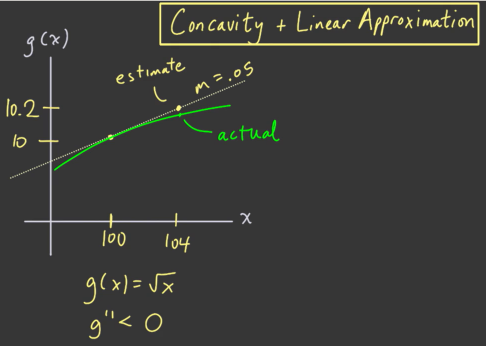 Concavity + Linear Approximation
g(x)
estimate
m = .05
10.2
10
actual
x
100
104
g(x) = √x
g'' < 0